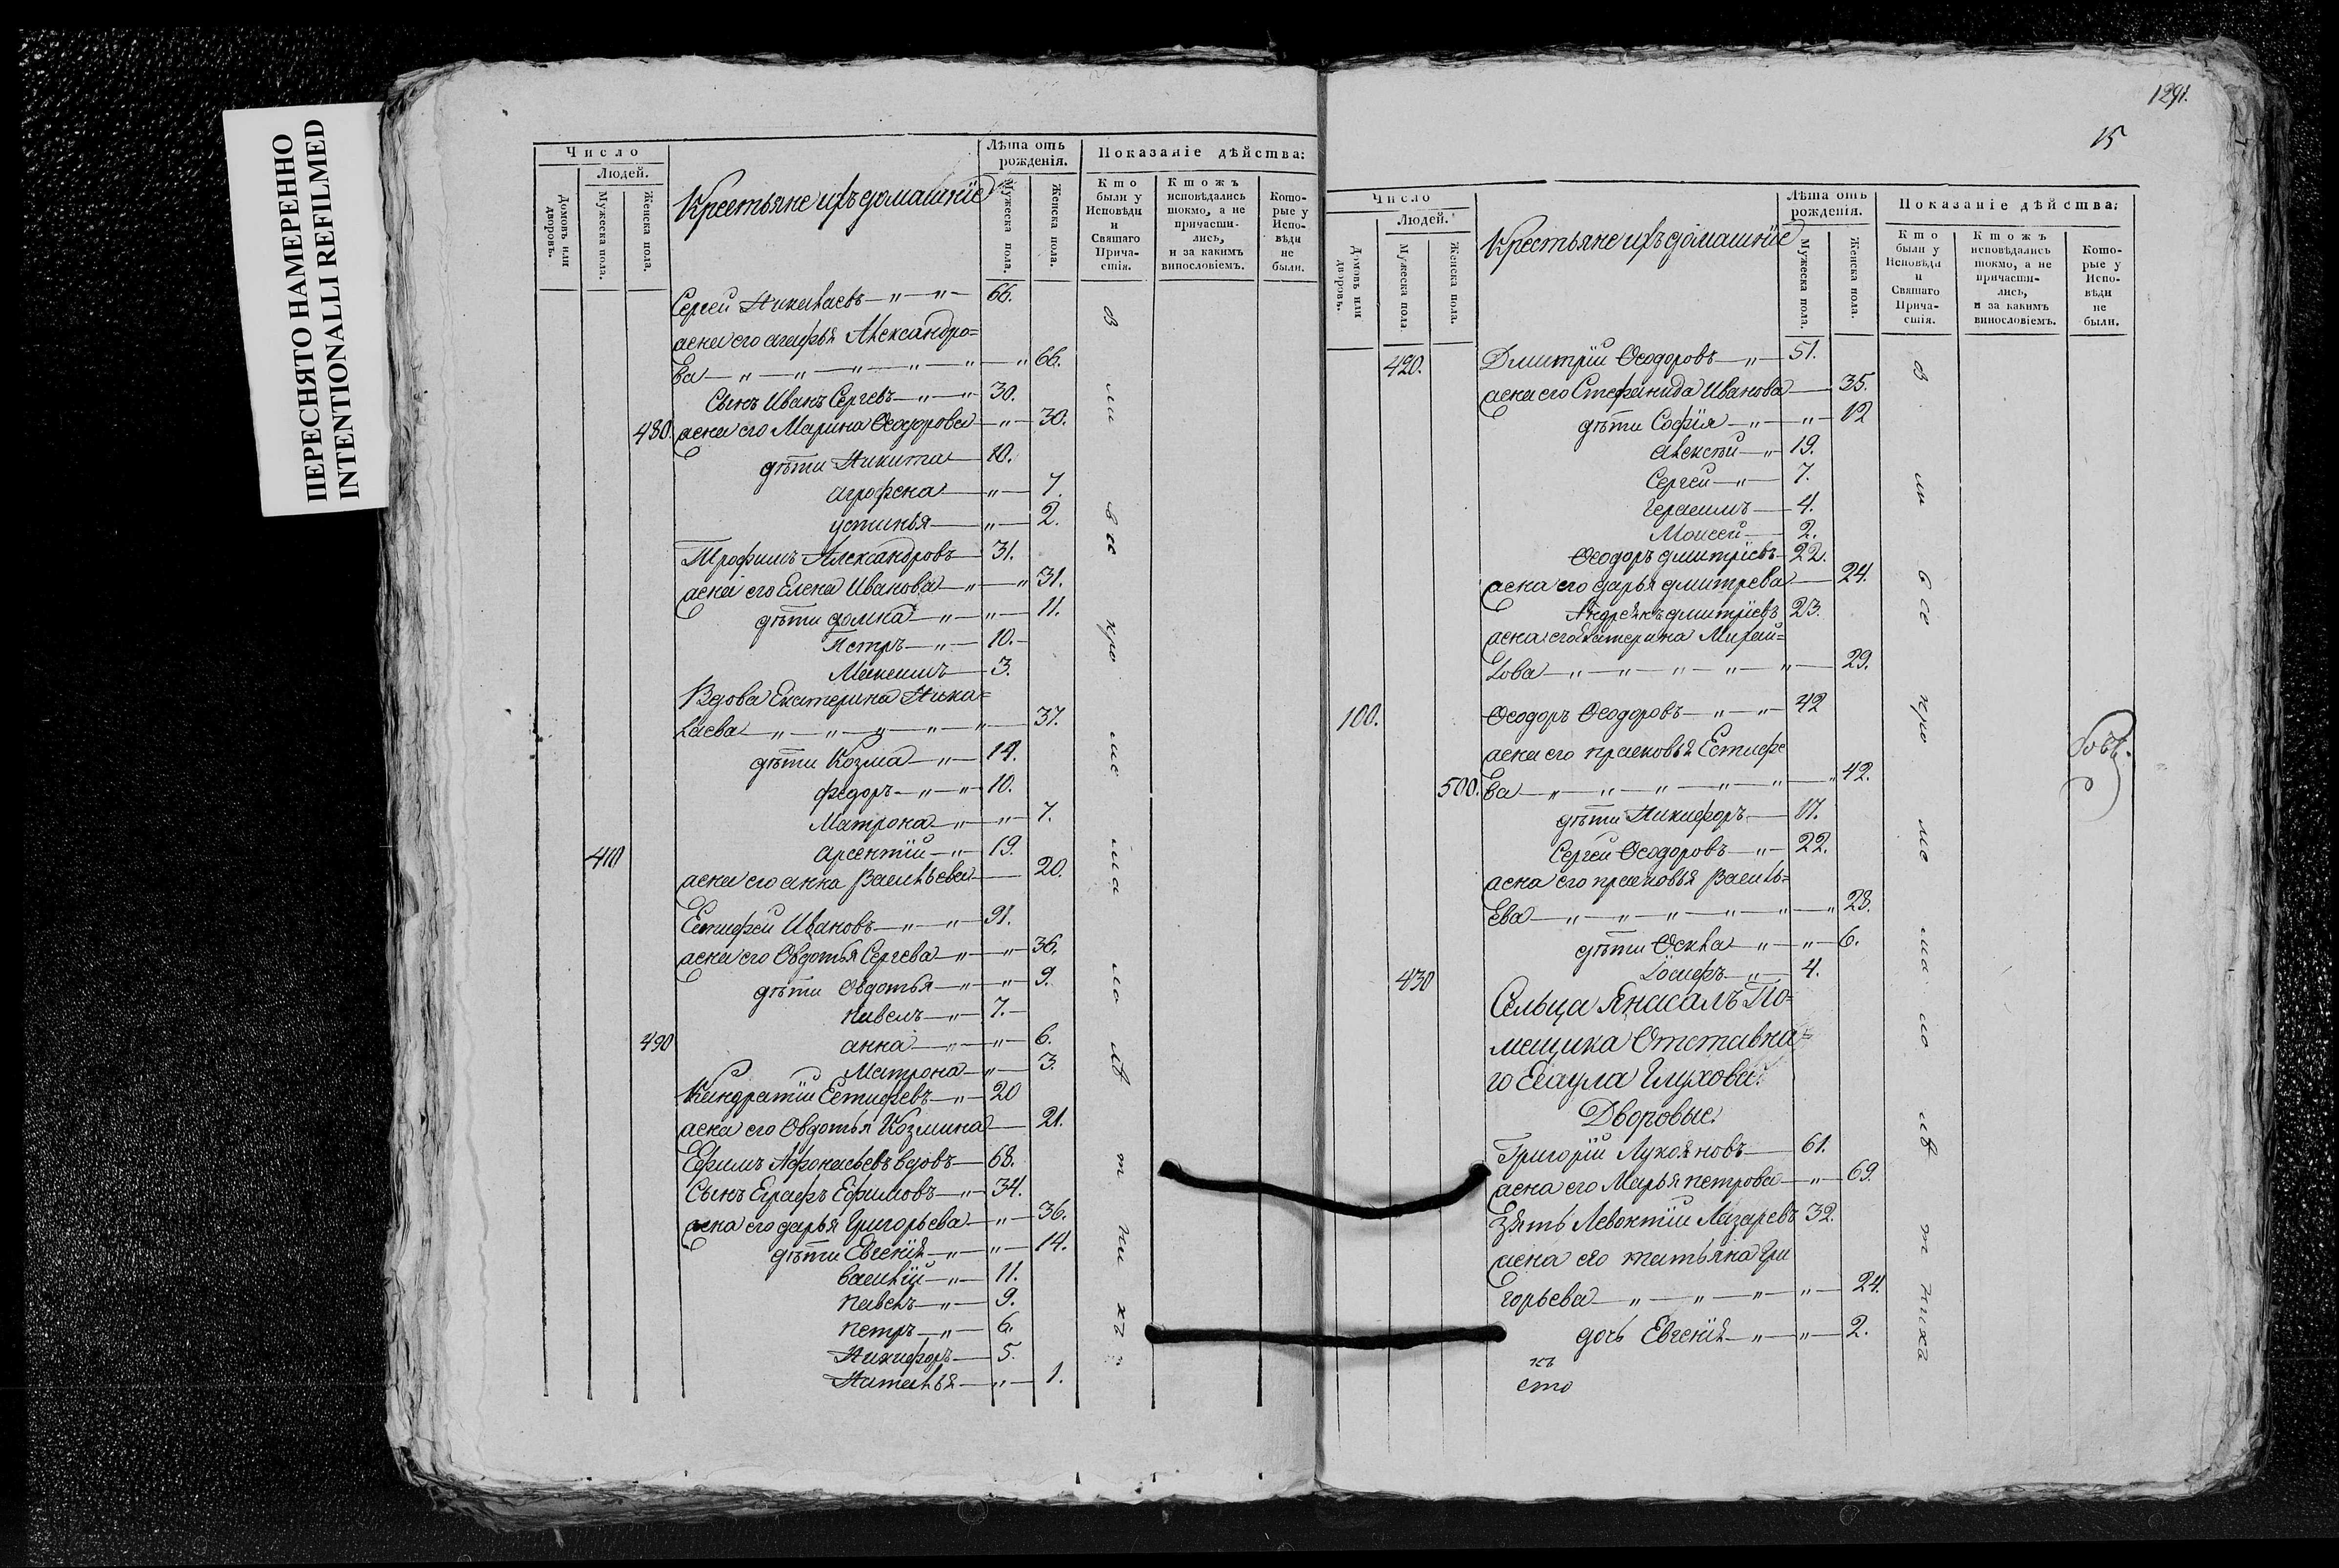 ПЕРЕСНЯТО НАМЕРЕННО
INTENTIONALLI REFILMED
Число
Людей.
Домовъ или дворовъ.
Мужеска пола.
Женска пола.
Крестьяне ихъ домашніе
Лѣта отъ рожденія.
Мужеска пола.
Женска пола.
Показаніе дѣйства:
Кто были у Исповѣди и Святаго Причастія.
Ктожъ исповѣдались токмо, а не причастились, и за какимъ винословіемъ.
Которые у Исповѣди не были.
Сергей Николаевъ 66.
жена его агафья Александро=
ва 66.
Сынъ Иванъ Сергевъ 30.
480. жена его Марина Ѳеодорова 30.
дѣти Никита 10.
агрофена 7.
устинья 2.
Трофимъ Александровъ 31.
жена его Елена Иванова 31.
дѣти домна 11.
Петръ 10.
Максимъ 3.
Вдова Екатерина Нико=
лаева 37.
дѣти Козма 14.
федоръ 10.
Матрона 7.
410 арсентій 19.
жена его анна Васильева 20.
Естифей Ивановъ 91.
жена его Овдотья Сергева 36.
дѣти Овдотья 9.
павелъ 7.
490 анна 6.
Матрона 3.
Кандратій Естифевъ 20
жена его Овдотья Козмина 21.
Ефимъ Афонасьевъ вдовъ 68.
Сынъ Еграфъ Ефимовъ 34.
жена его дарья Григорьева 36.
дѣти Евгенія 14.
василій 11.
павелъ 9.
петръ 6.
Никифоръ 5.
Наталья 1.
1291.
15
Число
Людей.
Домовъ или дворовъ.
Мужеска пола.
Женска пола.
Крестьяне ихъ домашніе
Лѣта отъ рожденія.
Мужеска пола.
Женска пола.
Показаніе дѣйства:
Кто были у Исповѣди и Святаго Причастія.
Ктожъ исповѣдались токмо, а не причастились, и за какимъ винословіемъ.
Которые у Исповѣди не были.
420. Дмитрій Ѳеодоровъ 51.
жена его Стефанида Иванова 35.
дѣти Софія 12
алексѣй 19.
Сергей 7.
Герасимъ 4.
Моисей 2.
Ѳеодоръ дмитріевъ 22.
жена его дарья дмитрева 24.
Андреянъ дмитріевъ 23.
жена его катерина Михай=
лова 29.
100. Ѳеодоръ Ѳеодоровъ 42
жена его прасковья Естифе
500. ва 42.
дѣти Никифоръ 17.
Сергей Ѳеодоровъ 22.
жена его прасковья Василь=
ева 28.
дѣти Ѳекла 6.
430 Іосифъ 4.
Сельца Янасалъ По=
мещика Отставна=
го Есаула Глухова.
Дворовые.
Григорій Лукояновъ 61.
жена его Марья петрова 69.
Зять Левонтій Лазаревъ 32.
жена его татьяна Гри
горьева 24.
дочь Евгенія 2.
сто